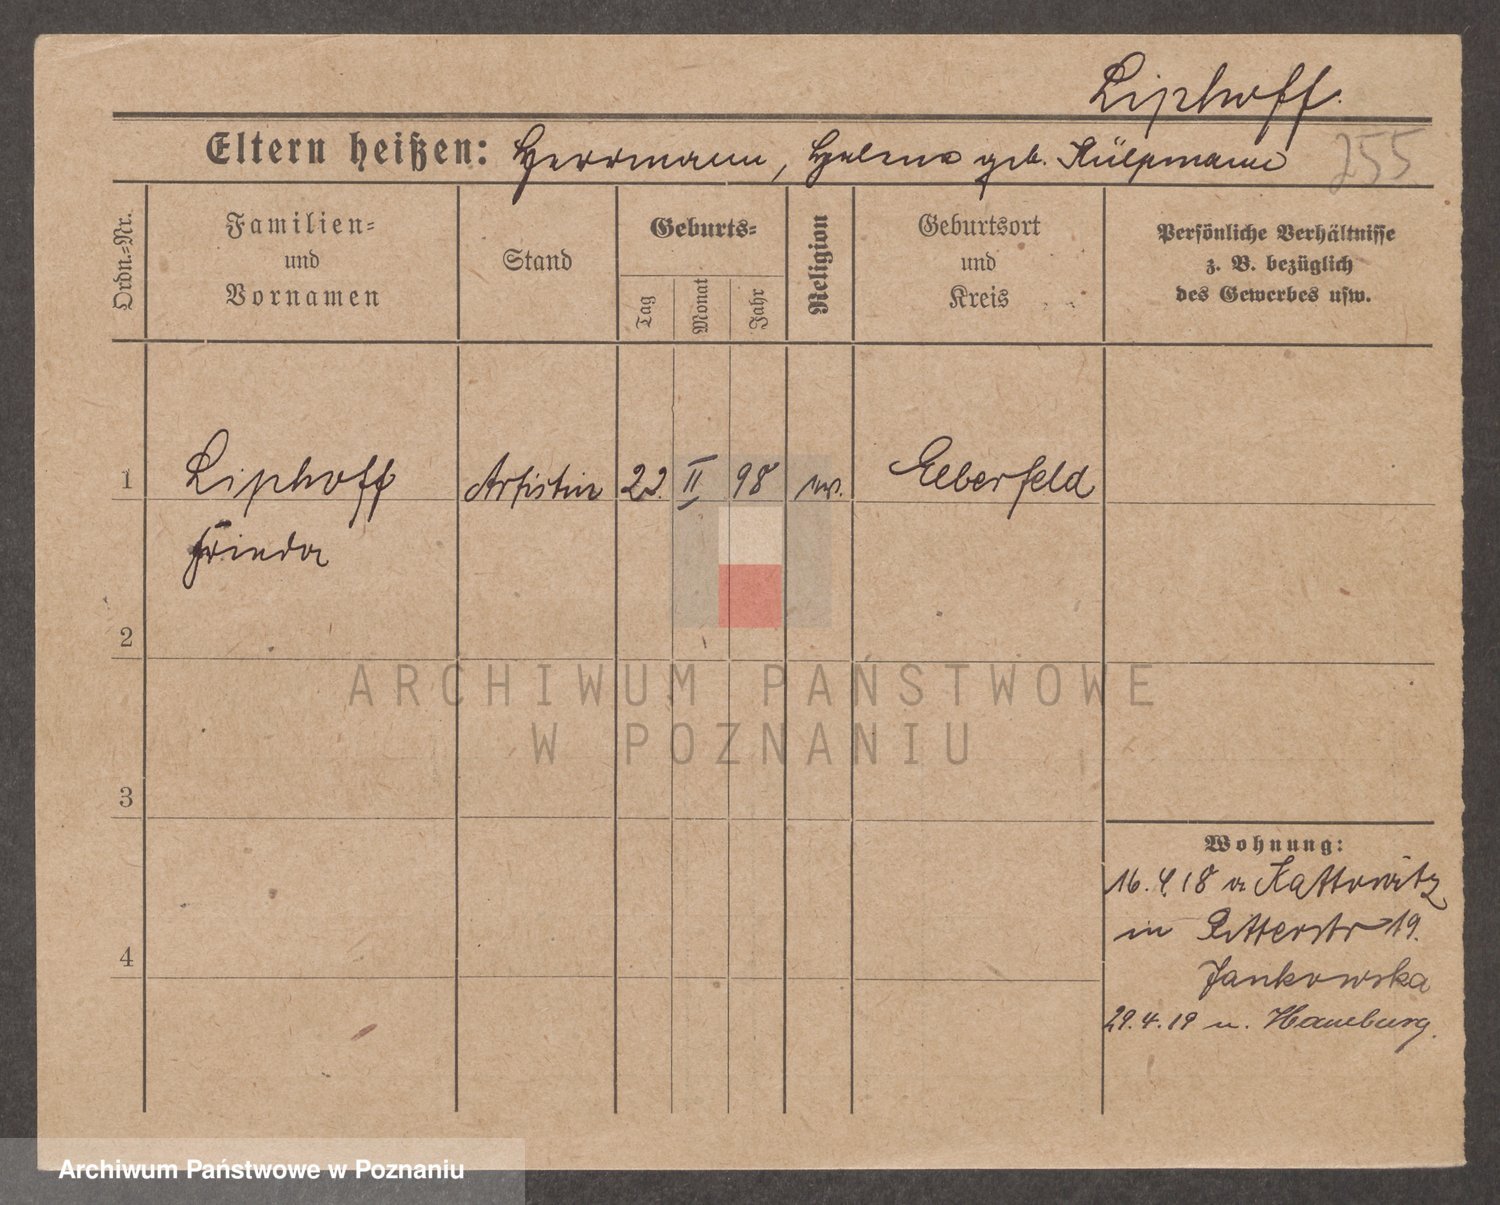 Liphoff.
Eltern heißen: Herrmann, Helene geb. Külpmann
255
Ordn.-Nr.
Familien-
und
Vornamen
Stand
Geburts-
Tag
Monat
Jahr
Religion
Geburtsort
und
Kreis
Persönliche Verhältnisse
z. B. bezüglich
des Gewerbes usw.
1 Liphoff Artistin 22. II 98 ev. Elberfeld
Frieda
2
3
4
Wohnung:
16.4.18 a Kattowitz
in Ritterstr 19.
Jankowska
29.4.19 n. Hamburg.
ARCHIWUM PAŃSTWOWE
W POZNANIU
Archiwum Państwowe w Poznaniu